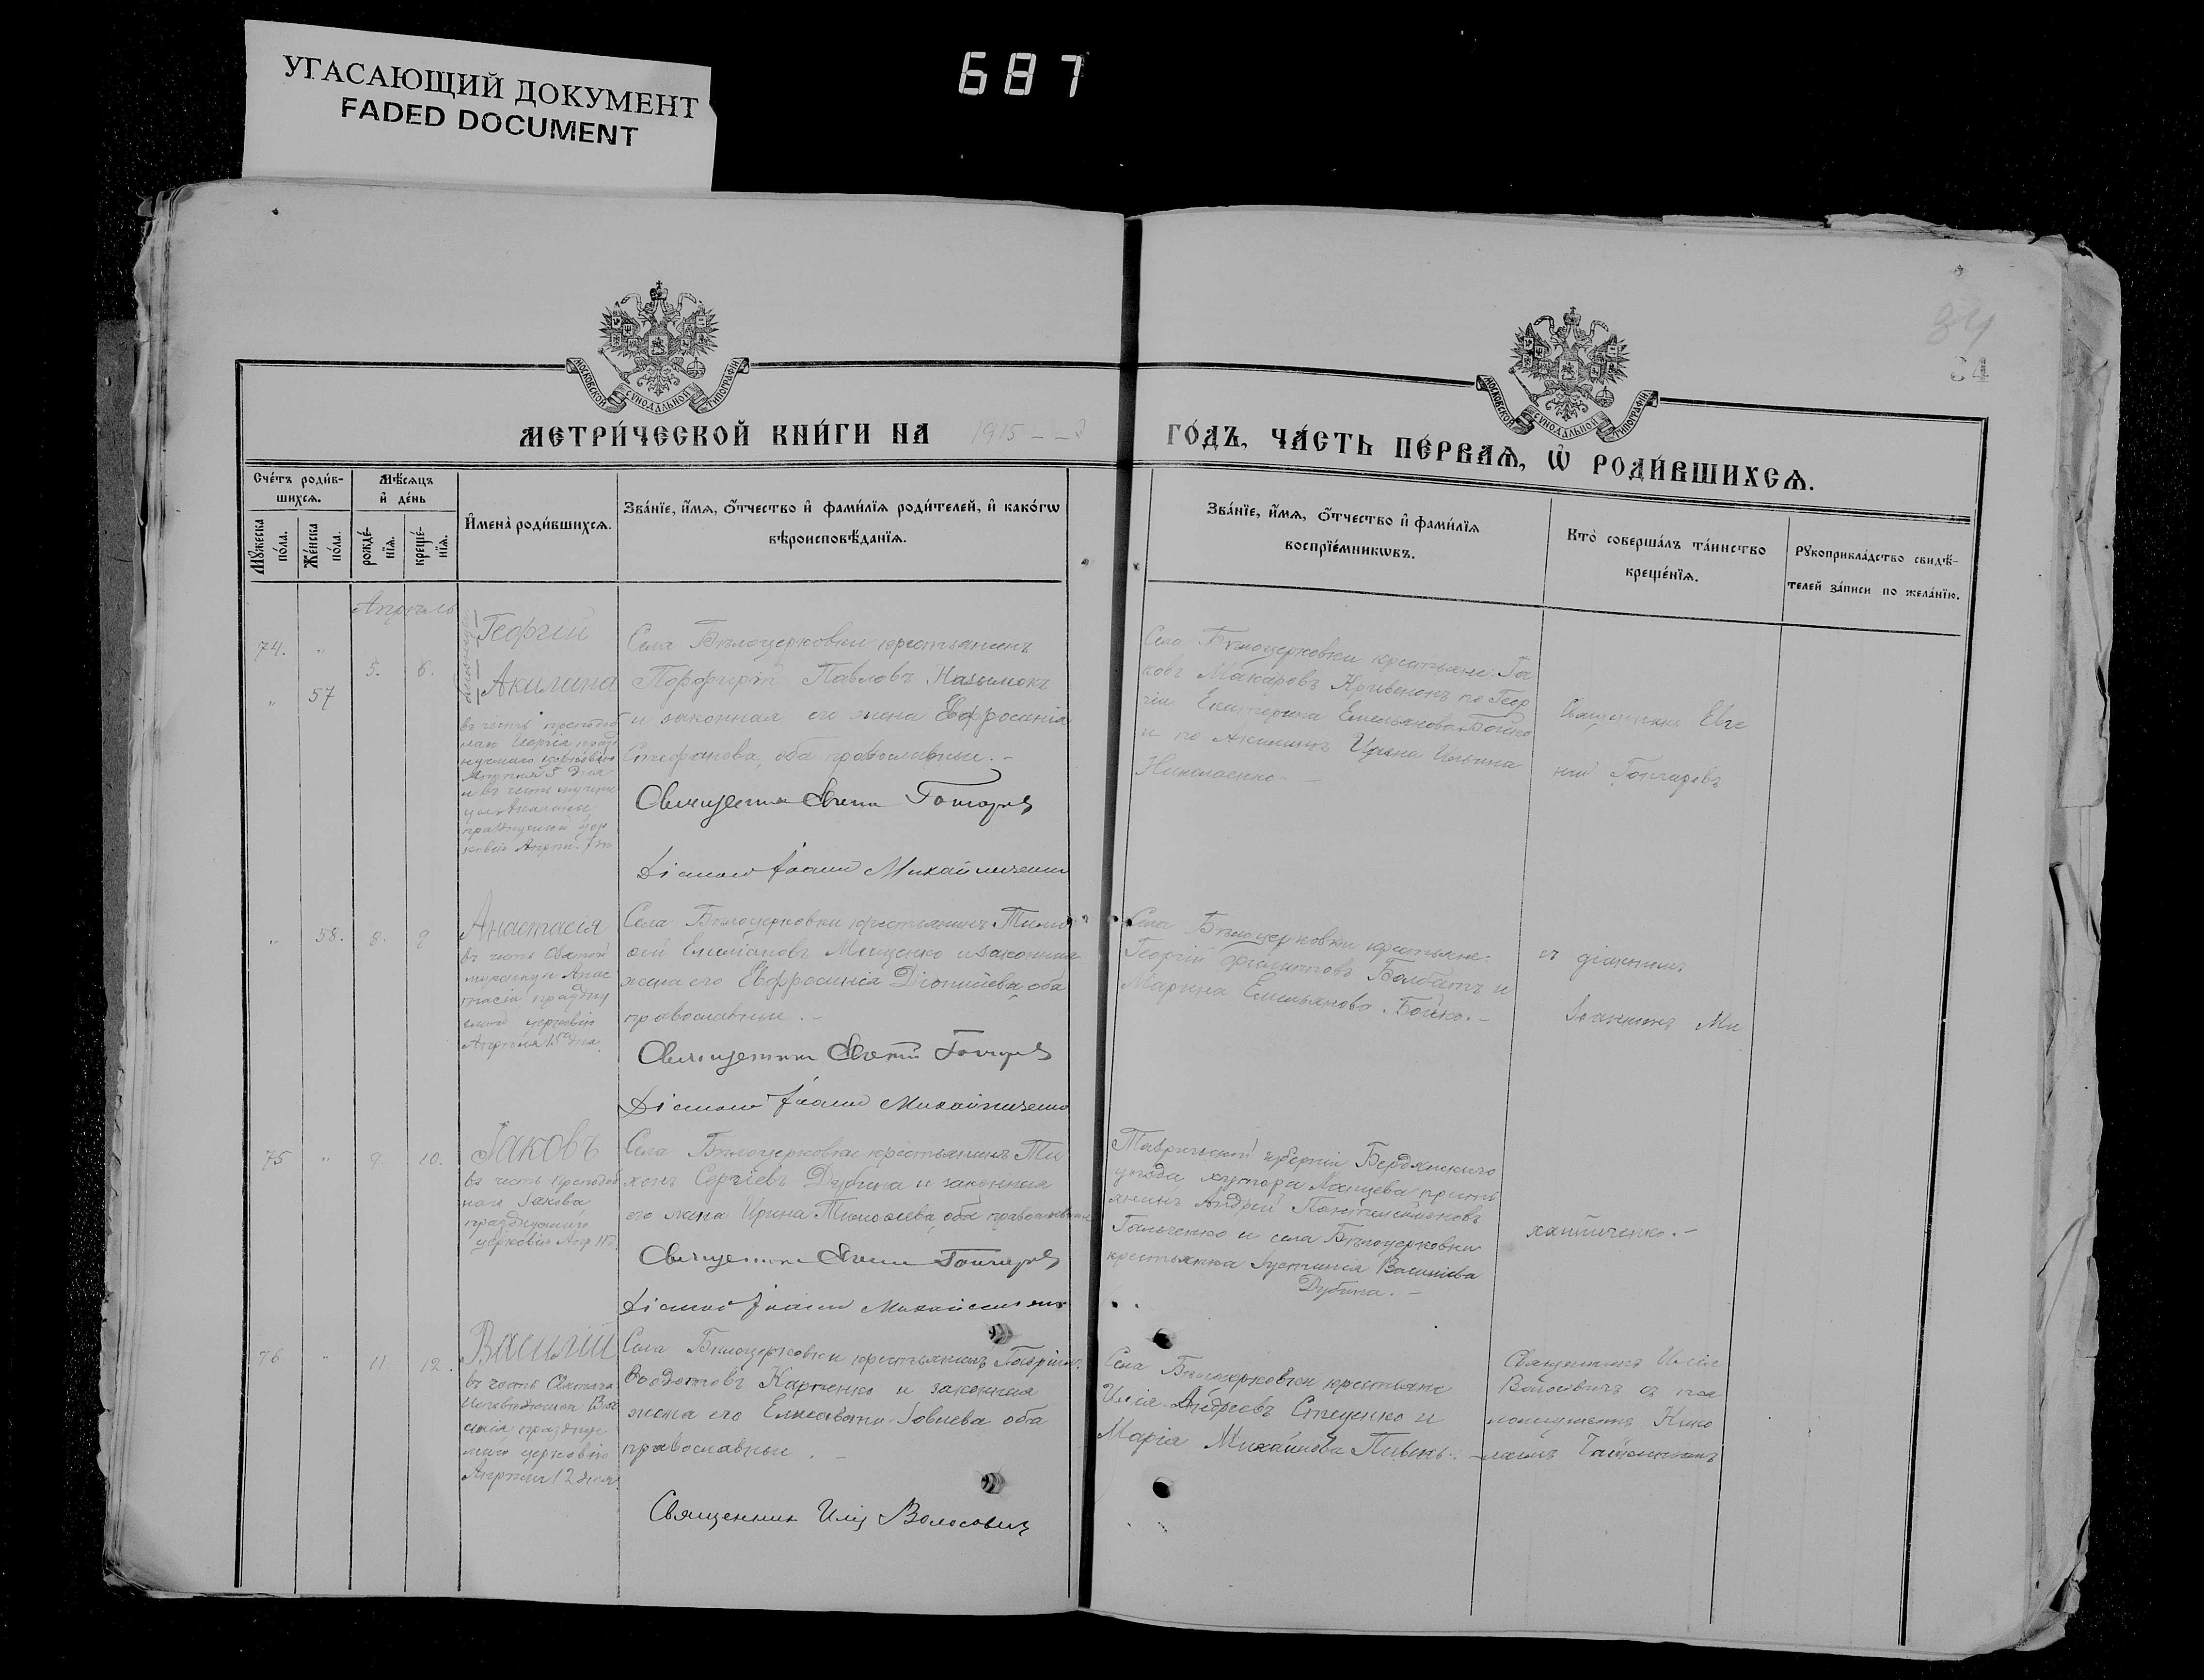 УГАСАЮЩИЙ ДОКУМЕНТ
FADED DOCUMENT
687
34
34
МОСКОВСКОЙ СѴНОДАЛЬНОЙ ТИПОГРАФІИ
МОСКОВСКОЙ СѴНОДАЛЬНОЙ ТИПОГРАФІИ
МЕТРИ́ЧЕСКОЙ КНИ́ГИ НА 1915
ГО́ДЪ, ЧА́СТЬ ПЕ́РВАѦ, Ѡ҆ РОДИ́ВШИХСѦ.
Сче́тъ роди́в-
шихсѧ.
Мꙋ́жеска
по́ла.
Же́нска
по́ла.
Мѣ́сѧцъ
и҆ де́нь
рожде́-
нїѧ.
креще́-
нїѧ.
И҆мена̀ роди́вшихсѧ.
Зва́нїе, и҆́мѧ, ѻ҆́тчество и҆ фами́лїѧ роди́телей, и҆ како́гѡ
вѣроисповѣ́данїѧ.
Зва́нїе, и҆́мѧ, ѻ҆́тчество и҆ фами́лїѧ
воспрїе́мникѡвъ.
Кто̀ соверша́лъ та́инство
креще́нїѧ.
Рꙋкоприкла́дство свидѣ́-
телей за́писи по жела́нїю.
Апрѣль
74. "
" 57
5. 6.
Близнецы
Георгій
Акилина
въ честь преподоб
наго Георгія празд
нуемаго церковію
Апрѣля 5 дня
и въ честь мучени
цы Акилины
празднуемой цер
ковію Апрѣл. 7 дн
Села Бѣлоцерковки крестьянинъ
Порфирій Павловъ
и законная его жена Евфросинія
Стефанова, оба православные. –
Священник Евгений Гончаров
Діакон Іоанн Михайличенко
Села Бѣлоцерковки крестьяне: Іа
ковъ Макаровъ Кривенокъ по Геор
гіи Екатерина Емельянова Бойко
и по Акилинѣ Ирина Ильина
Николаенко. –
Священникъ Евге
ній Гончаровъ
" 58. 8. 9
Анастасія
въ честь святой
мученицы Анас
тасіи праздну
емой церковію
Апрѣля 15 дня
Села Бѣлоцерковки крестьянинъ Тимо
фей Емиліановъ Мищенко и законная
жена его Евфросинія Діонисіева, оба
православные. –
Священник Евгений Гончаров
Діакон Іоанн Михайличенко
Села Бѣлоцерковки крестьяне:
Георгій Филипповъ Балбатъ и
Марина Емельянова Бойко. –
съ діакономъ
Іоанномъ Ми
75 " 9. 10.
Іаковъ
въ честь преподоб
наго Іакова
празднуемаго
церковію Апр. 11 д.
Села Бѣлоцерковки крестьянинъ Ти
хонъ Сергіевъ Дубина и законная
его жена Ирина Тимофеева, оба православные
Священник Евгений Гончаров
Діакон Іоанн Михайличенко
Таврической губерніи Бердянскаго
уѣзда хутора крестъ
янинъ Андрей Пантелеймоновъ
Гальченко и села Бѣлоцерковки
крестьянка Іустинія Василіева
Дубина. –
хайличенко. –
76 " 11. 12.
Василій
въ честь Святаго
Исповѣдника Ва
силія праздну
емаго церковію
Апрѣля 12 дня.
Села Бѣлоцерковки крестьянинъ Гавріилъ
Ѳеодотовъ Карпенко и законная
жена его Елисавета Іовлева оба
православные. –
Священник Илія Волосович
Села Бѣлоцерковки крестьяне
Илія Андреевъ Стеценко и
Марія Михайлова Пивень. –
Священникъ Илія
Волосовичъ съ пса
ломщикомъ Нико
лаемъ